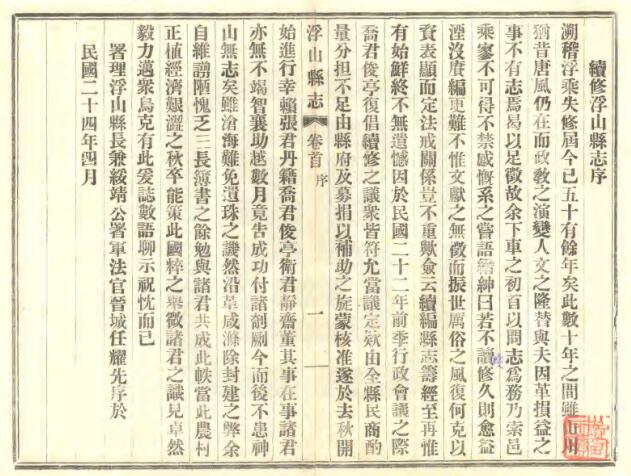 續修浮山縣志序
溯稽浮乘失修屆今已五十有餘年矣此數十年之間雖山川
猶昔唐風仍在而政敎之演變人文之隆替與夫因革損益之
事不有志焉曷以足徵故余下車之初首以問志爲務乃索邑
乘寥不可得不禁感慨系之嘗語縉紳曰若不讀修久則愈益
湮沒賡編更難不惟文獻之無徵而振世厲俗之風復何克以
資表顯而定法戒關係豈不重歟僉云續編縣志籌經至再惟
有始鮮終不無遺憾因於民國二十二年前季行政會議之際
喬君俊亭復倡續修之議衆皆符允當議定欵由全縣民商酌
量分担不足由縣府及募捐以補助之旋蒙核准遂於去秋開
浮山縣志 卷首 序 一
始進行幸賴張君丹籍喬君俊亭衛君靜齋董其事在事諸君
亦無不竭智襄助越數月竟告成功付諸剞劂今而後不患神
山無志矣雖滄海難免遺珠之譏然沿革咸滌除封建之弊余
自維譾陋愧乏三長簿書之餘勉與諸君共成此帙當此農村
正値經濟艱澀之秋卒能策此國粹之舉微諸君之識見卓然
毅力邁衆烏克有此爰誌數語聊示祝忱而已
署理浮山縣長兼綏靖公署軍法官晉城任耀先序於
民國二十四年四月